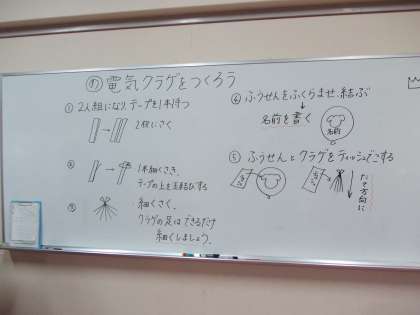 の 電気クラゲをつくろう
① 2人組になり、テープを1本持つ
2枚にさく
② 1本細くさき、
テープの上を玉結びする
③ 細くさく。
クラゲの足はできるだけ
細くしましょう。
④ ふうせんをふくらませ結ぶ
名前を書く
名前
⑤ ふうせんとクラゲをティッシュでこする
たて方向に